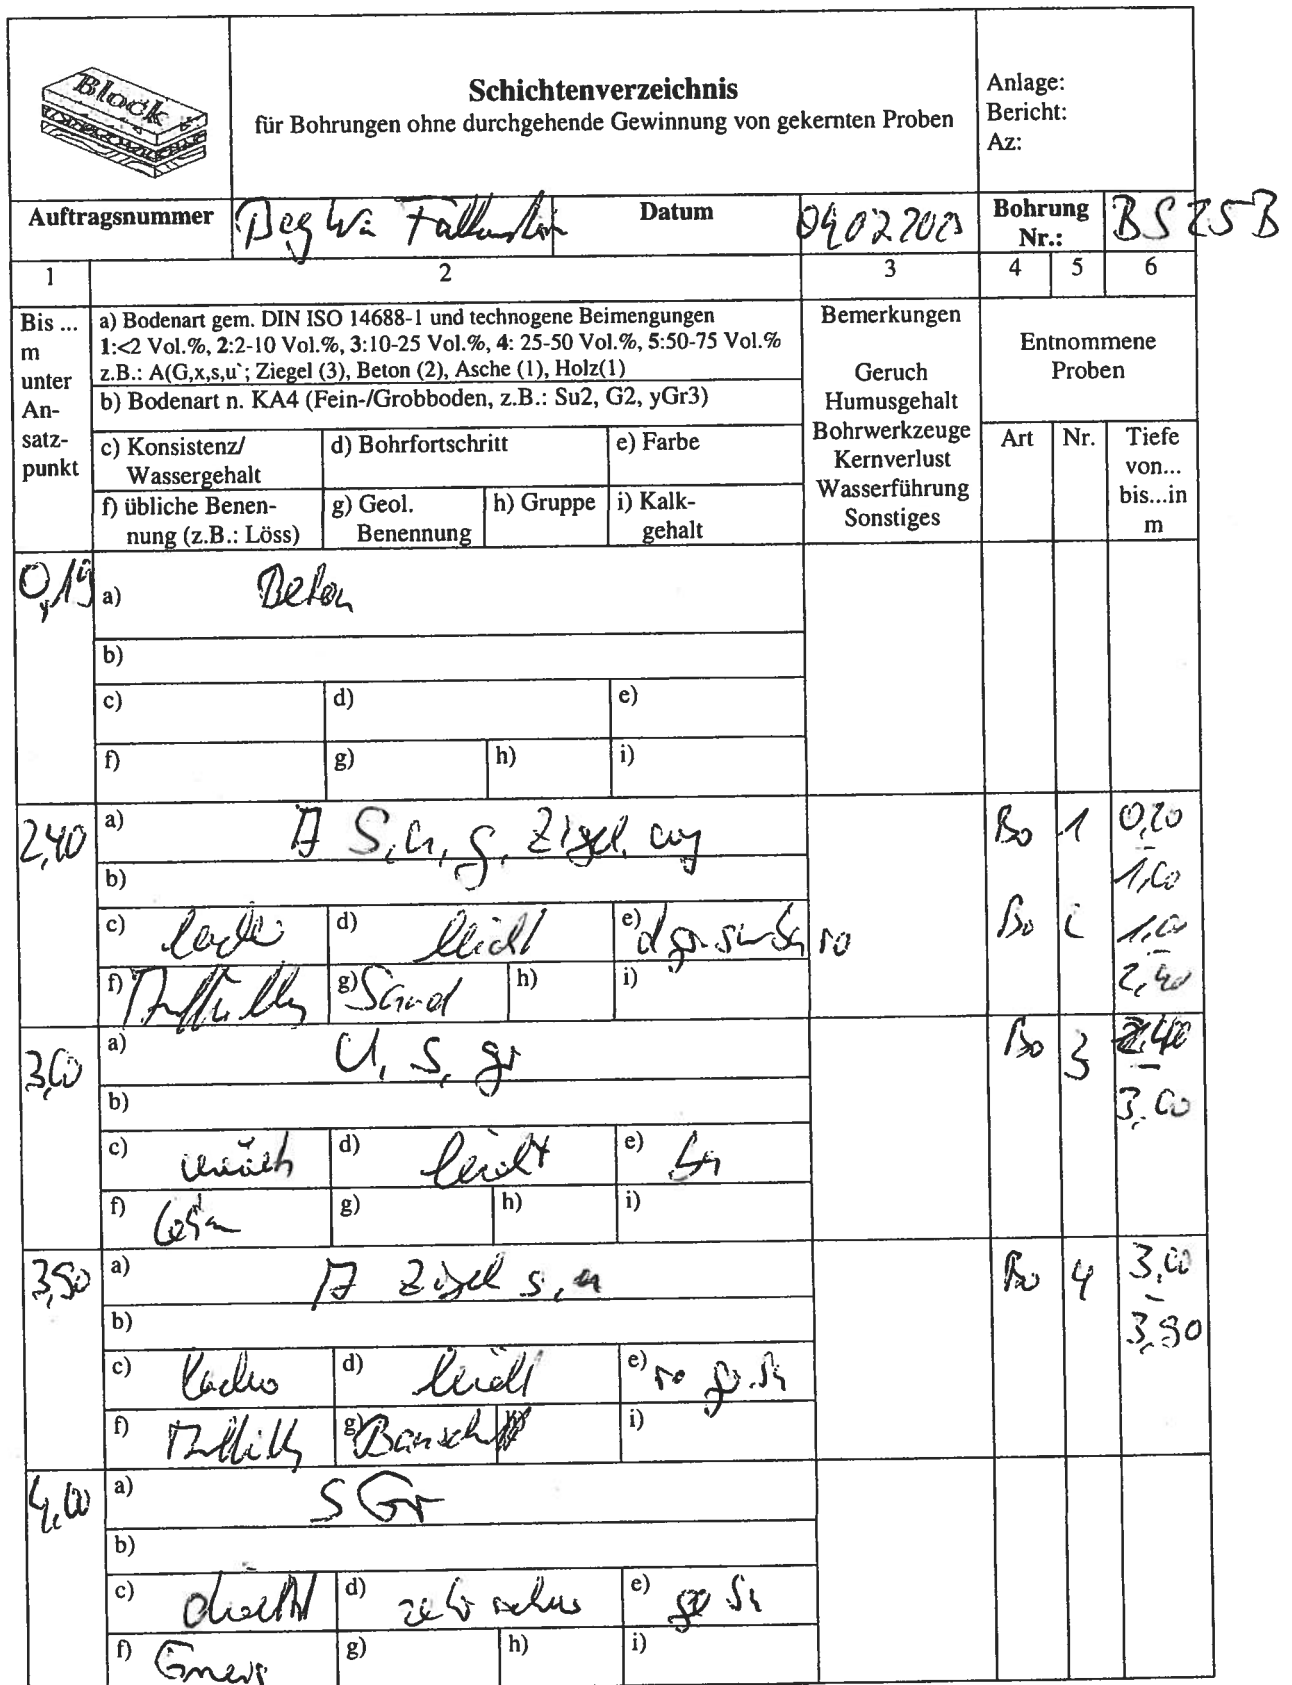 Block
Schichtenverzeichnis
für Bohrungen ohne durchgehende Gewinnung von gekernten Proben
Anlage:
Bericht:
Az:
Auftragsnummer
Datum
Bohrung
Nr.:
BS25B
1 2 3 4 5 6
Bis ...
m
unter
An-
satz-
punkt
a) Bodenart gem. DIN ISO 14688-1 und technogene Beimengungen
1:<2 Vol.%, 2:2-10 Vol.%, 3:10-25 Vol.%, 4: 25-50 Vol.%, 5:50-75 Vol.%
z.B.: A(G,x,s,u`; Ziegel (3), Beton (2), Asche (1), Holz(1)
b) Bodenart n. KA4 (Fein-/Grobboden, z.B.: Su2, G2, yGr3)
c) Konsistenz/
Wassergehalt
d) Bohrfortschritt
e) Farbe
f) übliche Benen-
nung (z.B.: Löss)
g) Geol.
Benennung
h) Gruppe
i) Kalk-
gehalt
Bemerkungen
Geruch
Humusgehalt
Bohrwerkzeuge
Kernverlust
Wasserführung
Sonstiges
Entnommene
Proben
Art
Nr.
Tiefe
von...
bis...in
m
0,19
a) Beton
b)
c) d) e)
f) g) h) i)
2,40
a) A S, u, g, Zigel,
b)
c) d) leicht e)
f) g) Sand h) i)
Bo 1 0,20
-
1,00
Bo 2 1,00
-
2,40
3,00
a) U, S, gr
b)
c) d) leicht e) br
f) g) h) i)
Bo 3 2,40
-
3,00
3,90
a) A Zigel s, u
b)
c) d) leicht e)
f) g) h) i)
Bo 4 3,00
-
3,90
4,00
a) S Gr
b)
c) d) e)
f) g) h) i)